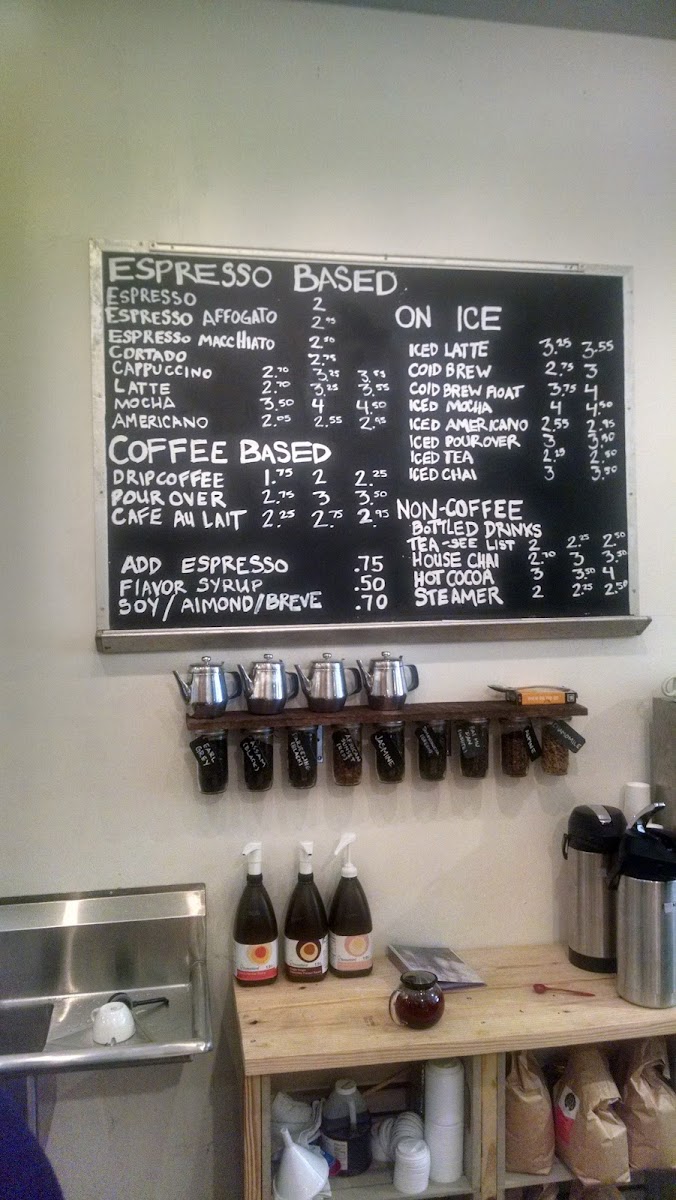 ESPRESSO BASED
ESPRESSO 2
ESPRESSO AFFOGATO 2.95
ESPRESSO MACCHIATO 2.50
CORTADO 2.75
CAPPUCCINO 2.70 3.25 3.55
LATTE 2.70 3.25 3.55
MOCHA 3.50 4 4.50
AMERICANO 2.05 2.55 2.95
COFFEE BASED
DRIP COFFEE 1.75 2 2.25
POUR OVER 2.75 3 3.50
CAFE AU LAIT 2.25 2.75 2.95
ADD ESPRESSO .75
FLAVOR SYRUP .50
SOY/ALMOND/BREVE .70
ON ICE
ICED LATTE 3.25 3.55
COLD BREW 2.75 3
COLD BREW FLOAT 3.75 4
ICED MOCHA 4 4.50
ICED AMERICANO 2.55 2.95
ICED POUROVER 3 3.50
ICED TEA 2.25 2.50
ICED CHAI 3 3.50
NON-COFFEE
BOTTLED DRINKS
TEA-SEE LIST 2 2.25 2.50
HOUSE CHAI 2.70 3 3.50
HOT COCOA 3 3.50 4
STEAMER 2 2.25 2.50
EARL GREY
ASSAM (BLACK)
DARJEELING (BLACK)
AFRICAN
JASMINE